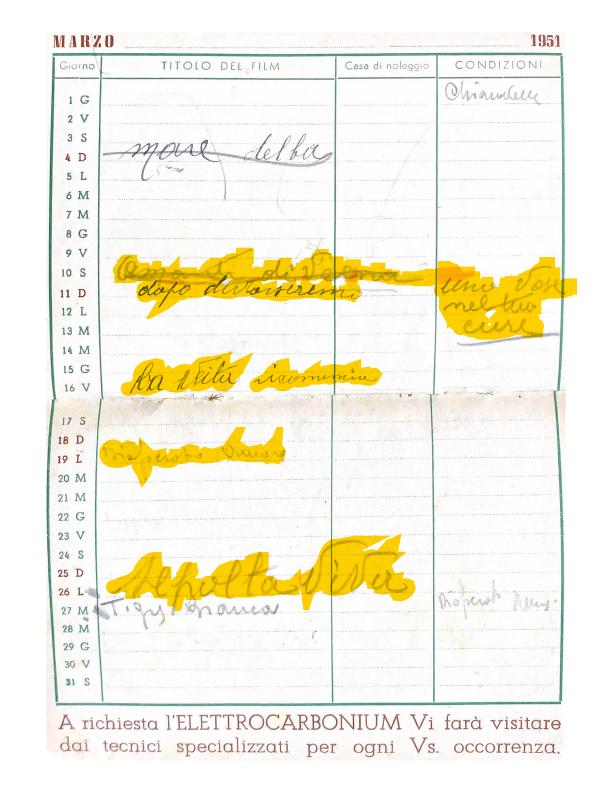 MARZO 1951
Giorno TITOLO DEL FILM Casa di noleggio CONDIZIONI
1 G
2 V
3 S
4 D mare delba
5 L
6 M
7 M
8 G
9 V
10 S di una voce
11 D dopo divorzieremo nel tuo
12 L cuore
13 M
14 M
15 G La vita ricomincia
16 V
17 S
18 D
19 L Disperato Amore
20 M
21 M
22 G
23 V
24 S
25 D Sepolta Viva
26 L
27 M Tigre bianca Disperato
28 M
29 G
30 V
31 S
A richiesta l'ELETTROCARBONIUM Vi farà visitare
dai tecnici specializzati per ogni Vs. occorrenza.